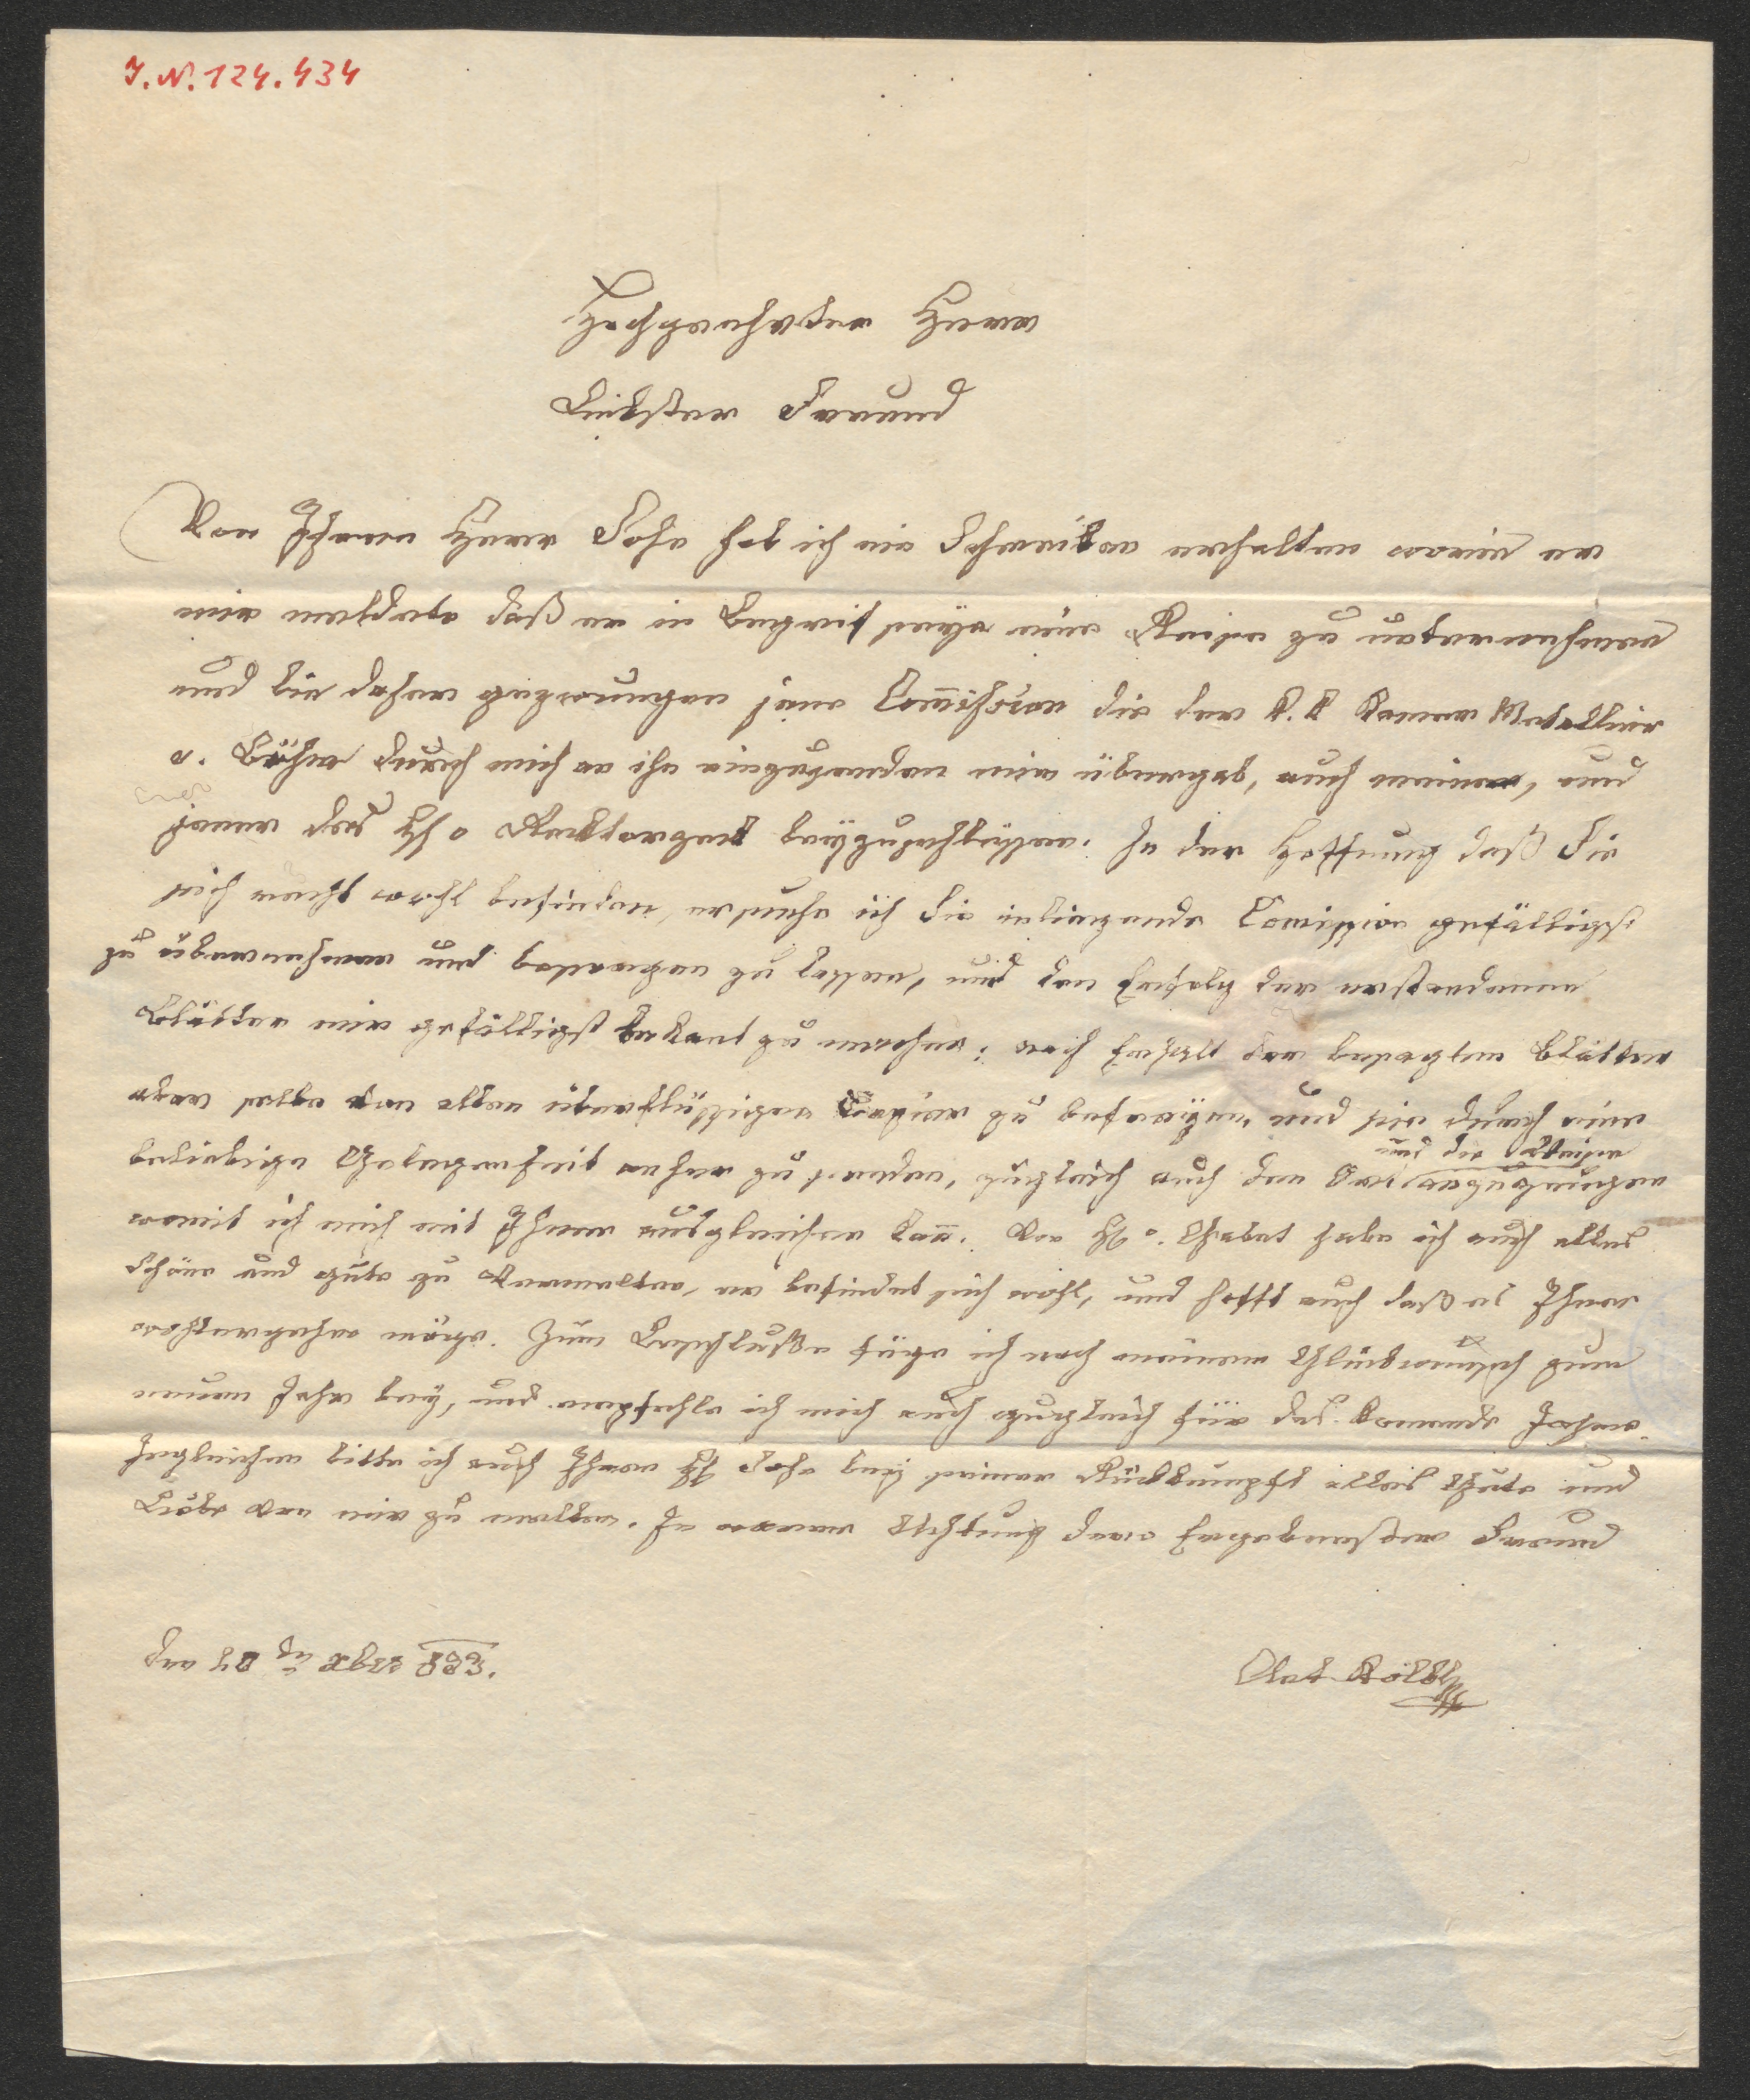 I.N. 124.434
Hochgeehrter Herr
Liebster Freund
Von Ihrem Herrn Sohn hab ich ein Schreiben erhalten worin er
mir meldete daß er in Begrif seye eine Reise zu unternehmen
und bin daher gezwungen jene Commission die der k.k. Kamer Medallieur
v. Böhm durch mich an ihn einzusenden mir übergab, auch meine, und
jener des H v Recktorzeck beyzuschlüssen. In der Hoffnung daß Sie
sich recht wohl befinden, ersuche ich Sie inliegende Comission gefälligst
zu übernehmen und besorgen zu lassen, und den Erfolg der erstandenen
Blätter mir gefälligst bekant zu machen: nach Erhalt der besagten Blätter
aber selbe von allen überflüssigen Papier zu befreyen, und sie durch eine
und die Weise
beliebige Gelegenheit anher zu senden, zugleich auch den Ort anzuzeigen
womit ich mich mit Ihnen ausgleichen kan̄. Von H v. Grabet habe ich auch alles
Schöne und gute zu Vermelten, er befindet sich wohl, und hofft auch daß es Ihnen
wohlergehen möge. Zum Beschluße füge ich noch meinen Glückwunsch zum
neuen Jahr bey, und empfehle ich mich auch zugleich für das komende Jahr.
Ingleichen bitte ich auch Ihren H Sohn bey seiner Rückkumpft alles Gute und
Liebe von mir zu melden. In warer Achtung dero Ergebenster Freund
den 28 tn xber 823.
Ant Kölbl